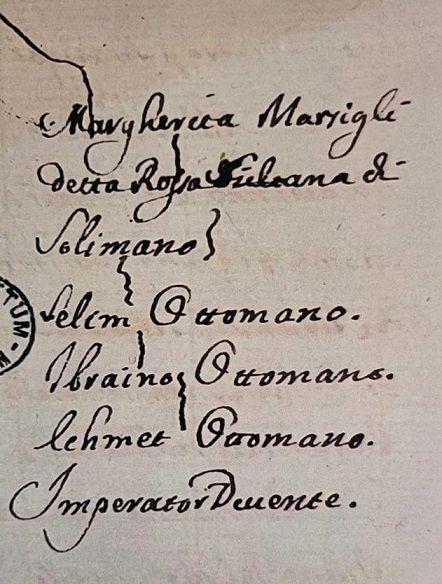 Margherita Marsigli
detta Rossa Sultana di
Solimano
Selim Ottomano.
Ibraino Ottomano.
Ottomano.
Imperator
TUM